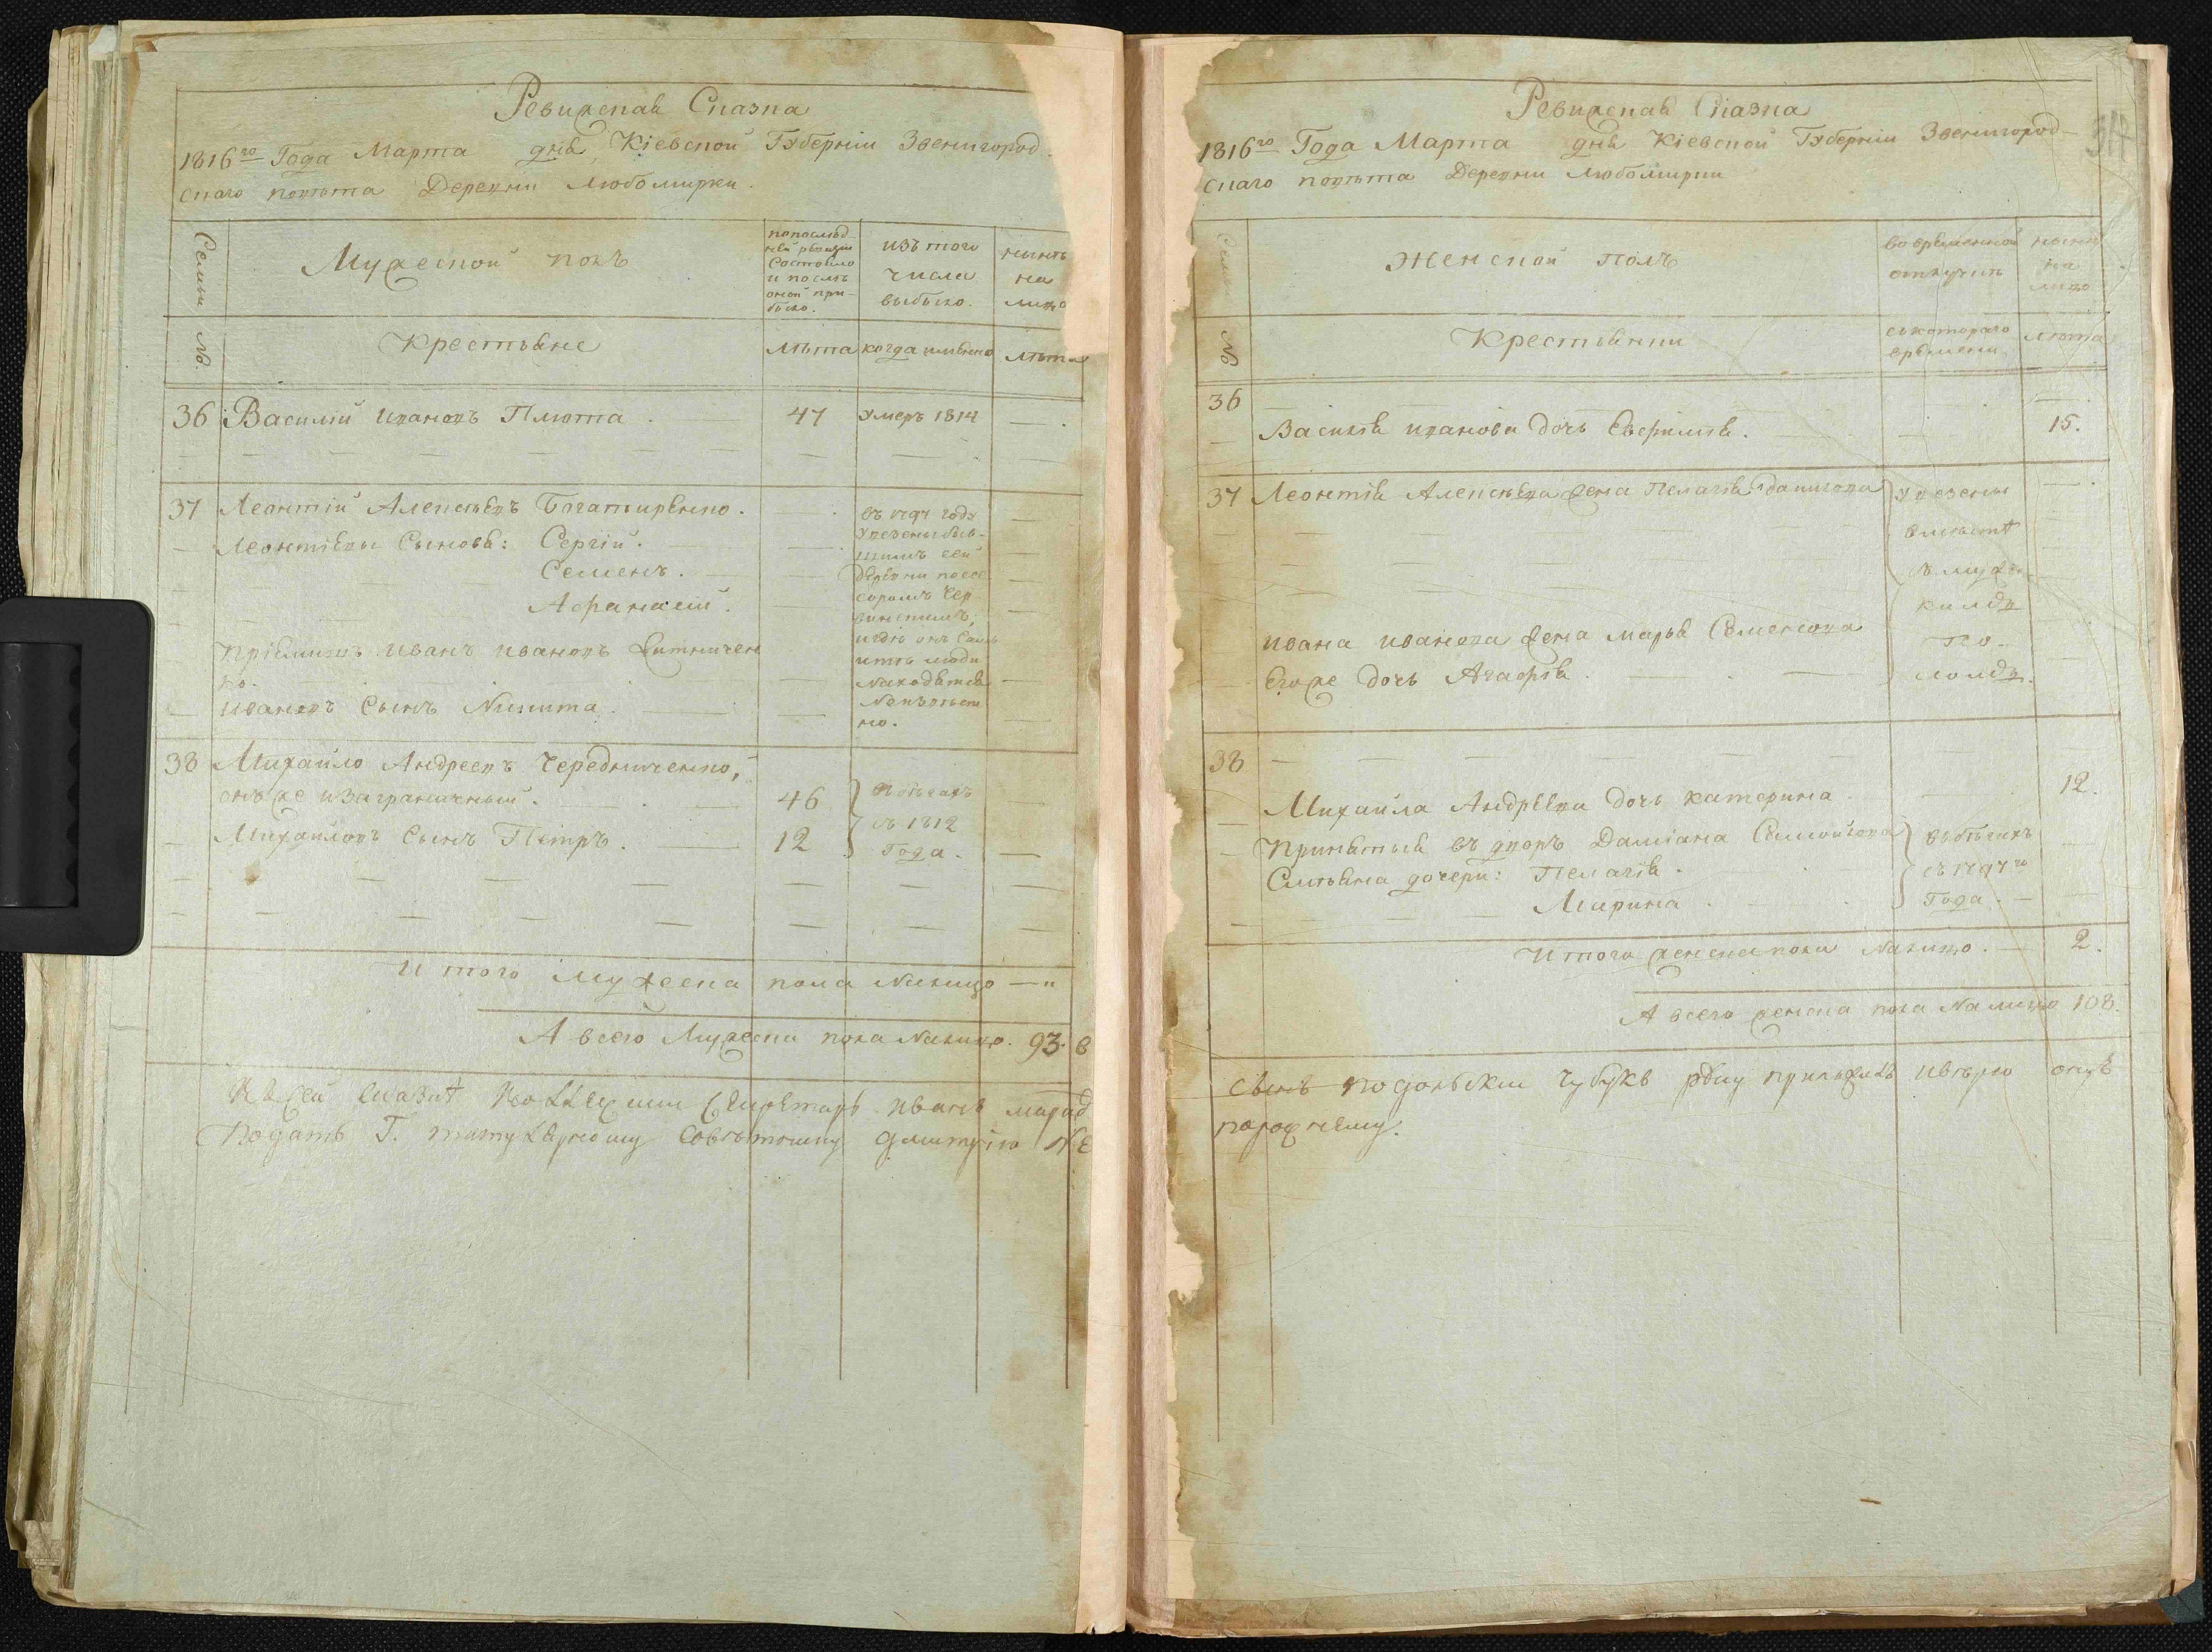 Ревижская Сказка
1816го Года Марта дня Кіевской Губерніи Звенигород-
скаго повѣта Деревни Любомирки.
Семьи
Мужеской полъ
попослѣд-
ней ревизіи
состояло
и послѣ
оной при-
было.
изъ того
числа
выбыло.
нынѣ
на
лицо
№.
Крестьяне
Лѣта
когда имянно
Лѣта
36 Василій Ивановъ Плюта. 47 умеръ 1814
37 Леонтій Алексѣевъ Багатиренко.
Леонтіевы Сыновья: Сергій.
Семенъ.
Афанасій.
Пріемишъ Иванъ Ивановъ Ситниченко.
Ивановъ Сынъ Никита.
въ 1797 году
увезены быв-
шимъ сей
деревни поссе
соромъ
и гдѣ онъ Самъ
итѣ люди
Находятся
Неизвѣст
но.
38 Михайло Андреевъ Чередниченко,
онъ же изаграничный. 46
Михайловъ Сынъ Петръ. 12
въ бѣгахъ
съ 1812
Года.
Итого Мужеска пола Налицо — "
А всего Мужеска пола Налицо. 93. в
Къ сей сказкѣ Коллежскій Секретарь Иванъ
Подать Г. титулярному совѣтнику Дмитрію
Ревижская Сказка
1816го Года Марта дня Кіевской Губерніи Звенигород-
скаго повѣта Деревни Любомирки
Семьи
Женской полъ
во временной
отлучкѣ
нынѣ
на
лицо
№
Крестьянки
съ котораго
времени
Лѣта
36
Василія Иванова дочь Евфимія. 15.
37 Леонтія Алексѣева жена Пелагія Данилова
Ивана Иванова жена Марья Семенова
Егоже дочь Агафія.
увезены
вмѣстѣ
38
Михайла Андреева дочь Катерина. 12.
Принятыя въ дворъ Даміана
дочери: Пелагія.
Марина
въ бѣгахъ
съ 1797го
Года.
Итого женска пола Налицо. 2.
А всего женска пола На лицо 108.
сынъ Подольски руку приложилъ
порожнему.